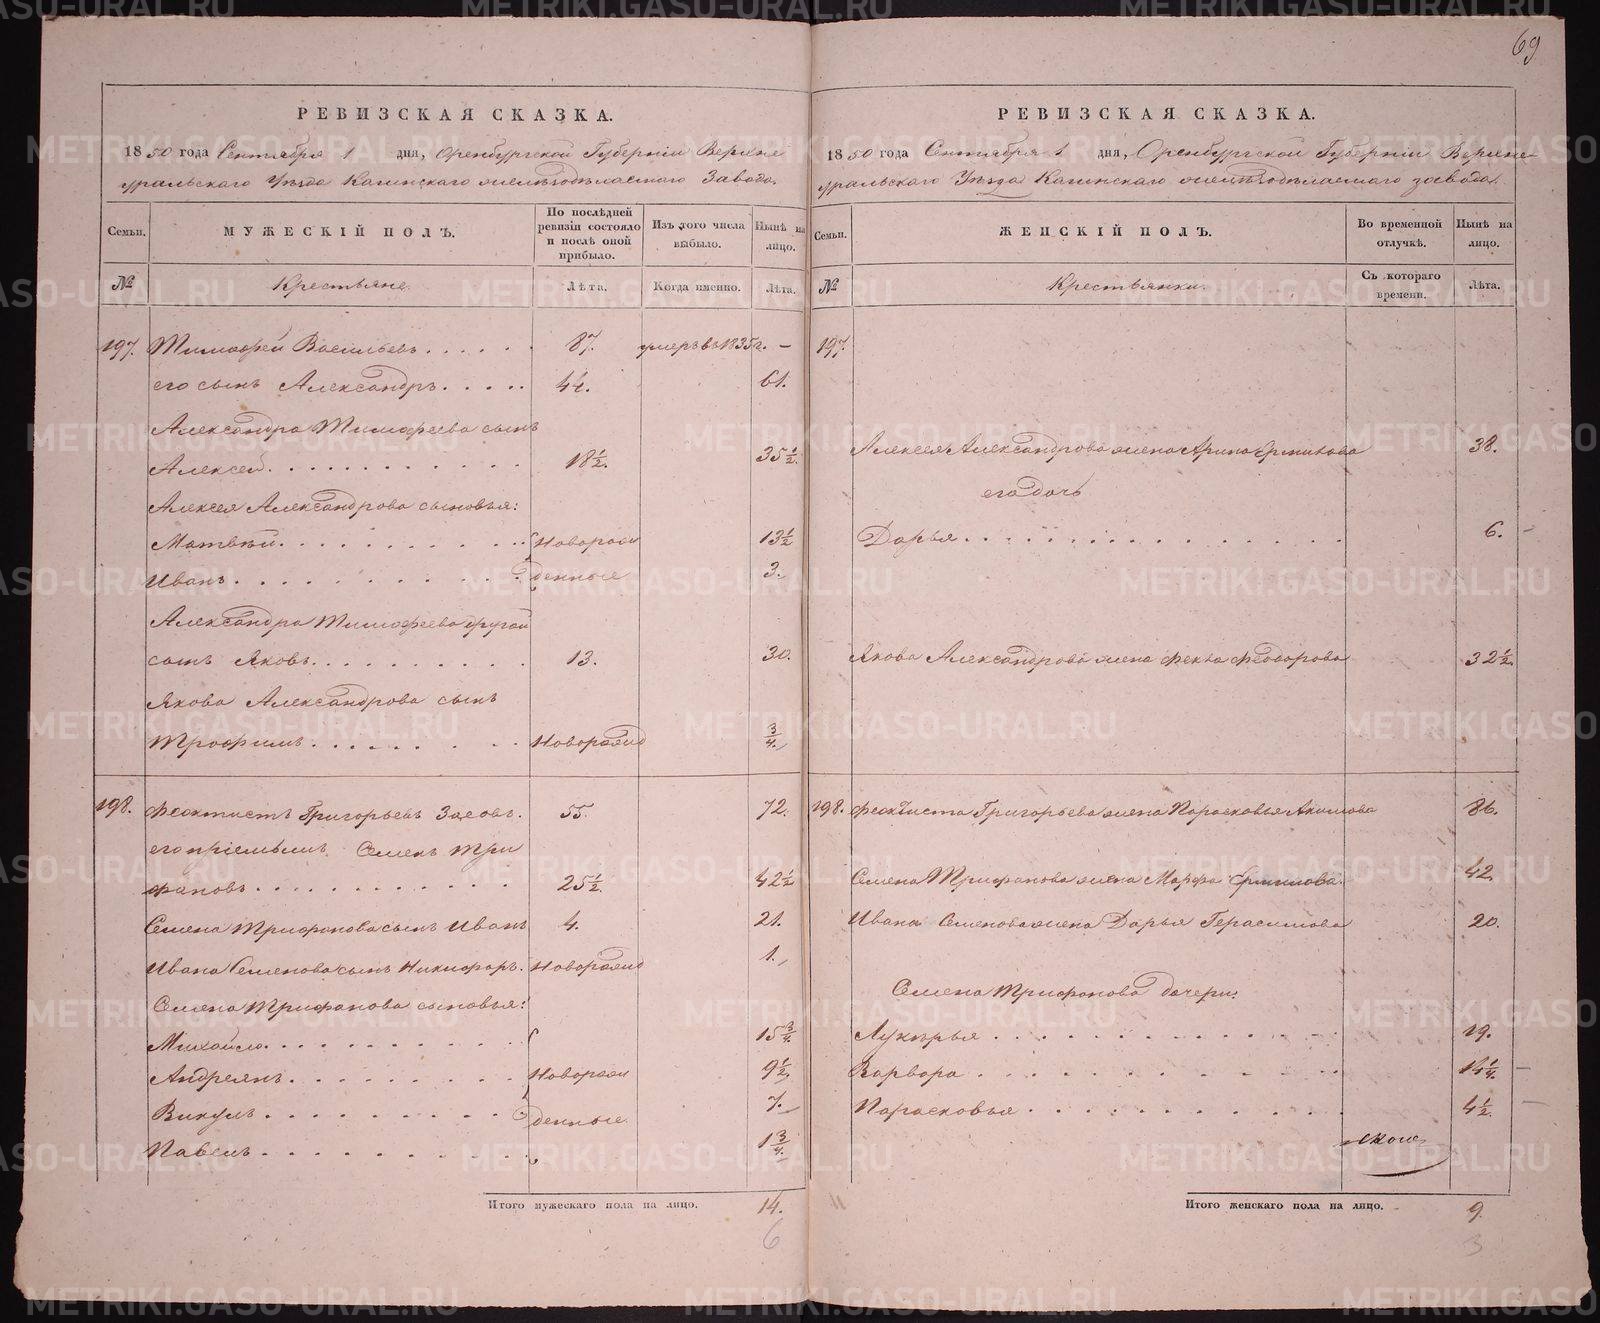 69
РЕВИЗСКАЯ СКАЗКА.
1850 года Сентября 1 дня, Оренбургской Губерніи Верхне
уральскаго Уѣзда Кагинскаго желѣзодѣлаемаго Завода.
Семьи.
МУЖЕСКІЙ ПОЛЪ.
По послѣдней ревизіи состояло и послѣ оной прибыло.
Изъ того числа выбыло.
Нынѣ на лицо.
№
Крестьяне.
Лѣта.
Когда именно.
Лѣта.
197. Тимофей Васильевъ 87. умеръ въ 1835 г. —
его сынъ Александръ 44. 61.
Александра Тимофеева сынъ
Алексей 18½. 35½.
Алексея Александрова сыновья:
Матвѣй Новорож 13½
Иванъ денные 3.
Александра Тимофеева другой
сынъ Яковъ 13. 30.
Якова Александрова сынъ
Трофимъ Новорожд ¾.
198. Феоктистъ Григорьевъ 55. 72.
его пріемышъ Семенъ Три
фановъ 25½. 42½
Семена Трифанова сынъ Иванъ 4. 21.
Ивана Семенова сынъ Никифоръ. Новорожд 1.
Семена Трифанова сыновья:
Михайло 15¾.
Андреянъ Новорож 9½
Викулъ денные 7.
Павелъ 1¾.
Итого мужескаго пола на лицо. 14.
6
РЕВИЗСКАЯ СКАЗКА.
1850 года Сентября 1 дня, Оренбургской Губерніи Верхне-
уральскаго Уѣзда Кагинскаго желѣзодѣлаемаго завода.
Семьи.
ЖЕНСКІЙ ПОЛЪ.
Во временной отлучкѣ.
Нынѣ на лицо.
№
Крестьянки.
Съ котораго времени.
Лѣта.
197.
Алексея Александрова жена Арина Ермилова 38.
его дочь
Дарья 6.
Якова Александрова жена Фекла Феодорова 32½.
198. Феоктиста Григорьева жена Парасковья Акимова 86.
Семена Трифанова жена Марфа Ермилова. 42.
Ивана Семенова жена Дарья Герасимова 20.
Семена Трифанова дочери:
Лукерья 19.
Варвора
Парасковья 4½.
Итого женскаго пола на лицо. 9.
3
METRIKI.GASO-URAL.RU